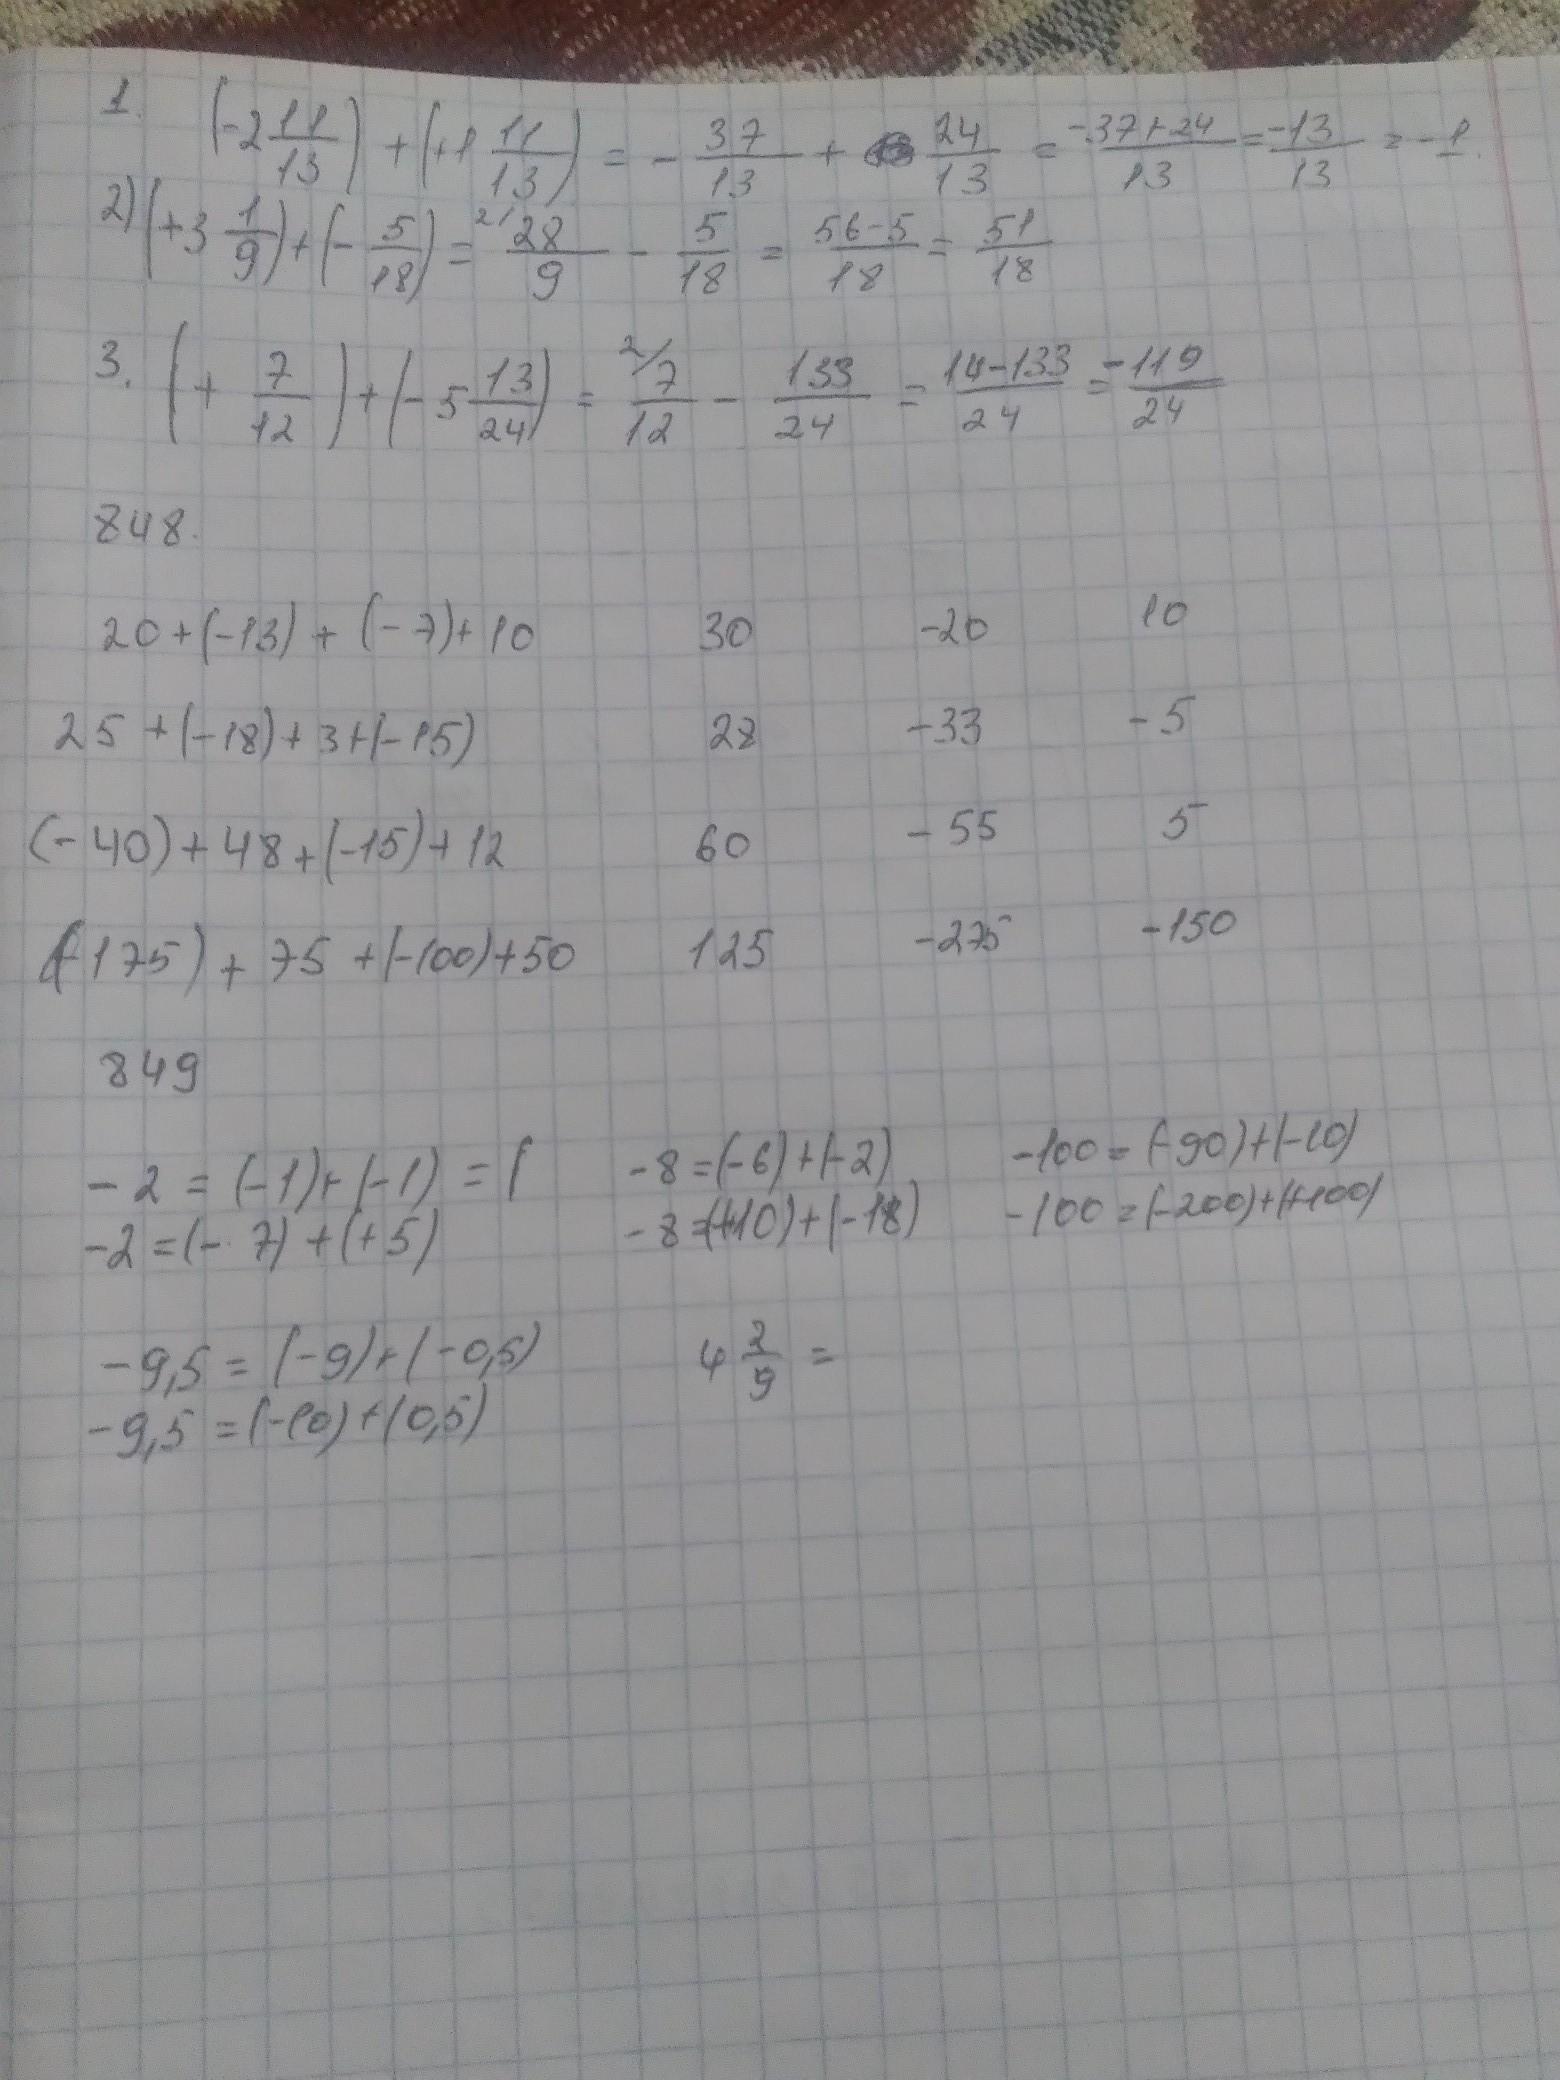 1. (-2 11/13) + (+1 11/13) = - 37/13 + 24/13 = -37+24/13 = -13/13 = -1.
2) (+3 1/9) + (- 5/18) = 2/ 28/9 - 5/18 = 56-5/18 = 51/18
3. (+ 7/12) + (- 5 13/24) = 2/ 7/12 - 133/24 = 14-133/24 = -119/24
848.
20+(-13) + (-7)+10 30 -20 10
25 +(-18)+3+(-15) 28 -33 -5
(-40)+48+(-15)+12 60 -55 5
(-175) + 75 +(-100)+50 125 -275 -150
849
-2 = (-1)+(-1) = ( -8=(-6)+(-2) -100=(-90)+(-10)
-2=(-7)+(+5) -8=(+10)+(-18) -100=(-200)+(+100)
-9,5 = (-9)+(-0,5) 4 2/9 =
-9,5 =(-10)+(0,5)